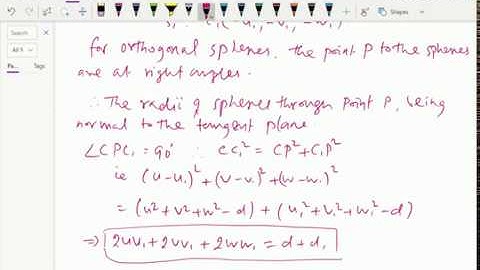 Shapes
Search
All
for orthogonal spheres, the point P to the spheres
are at right angles.
∴ The radii of spheres through point P, being
normal to the tangent plane
∠CPC₁ = 90° ∴ CC₁² = CP² + C₁P²
ie (u-u₁)² + (v-v₁)² + (w-w₁)²
= (u²+v²+w²-d) + (u₁²+v₁²+w₁²-d)
⇒ 2uu₁+2vv₁+2ww₁ = d+d₁